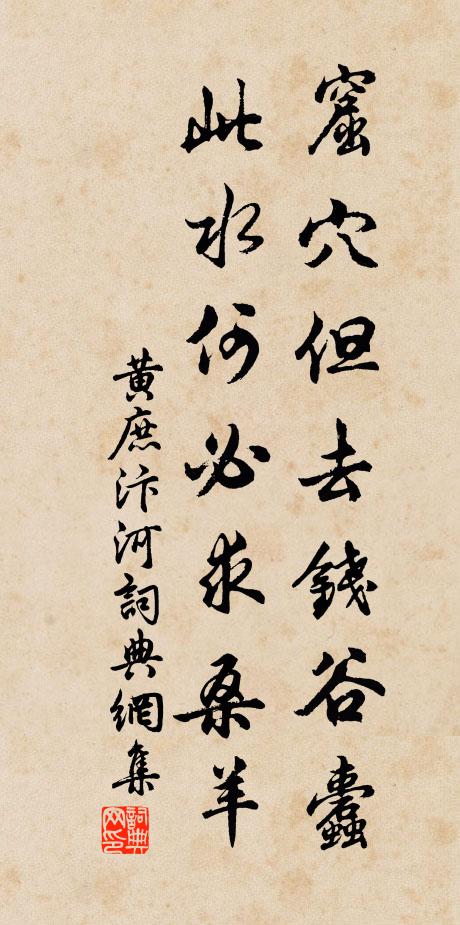 窟穴但去錢谷蠹
此水何必求桑羊
黃庶汴河詞典網集
詞典网印